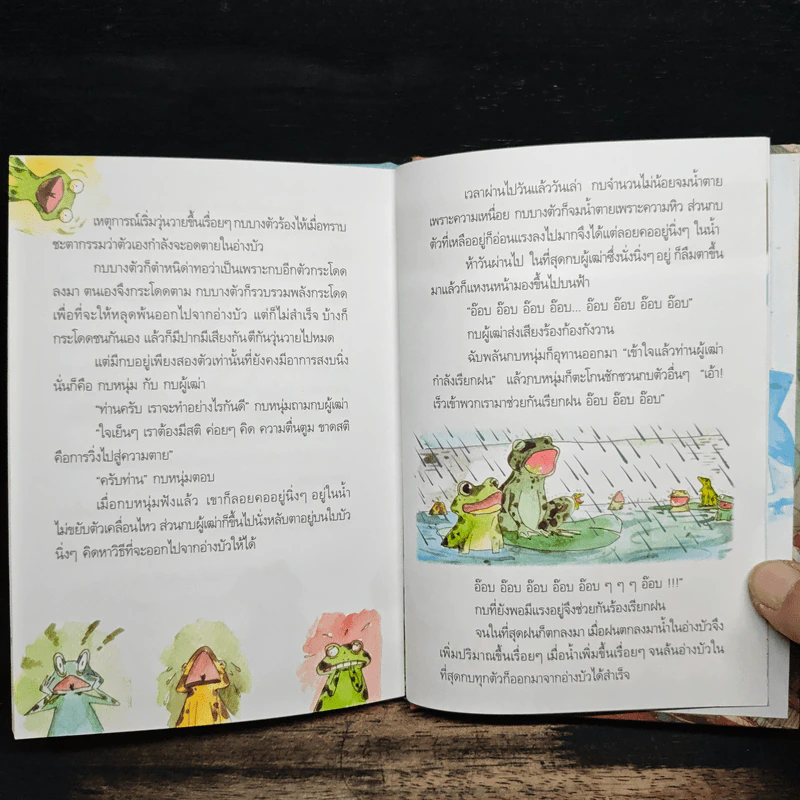 เหตุการณ์เริ่มวุ่นวายขึ้นเรื่อยๆ กบบางตัวร้องไห้เมื่อทราบ
ชะตากรรมว่าตัวเองกำลังจะอดตายในอ่างบัว
กบบางตัวก็ตำหนิด่าทอว่าเป็นเพราะกบอีกตัวกระโดด
ลงมา ตนเองจึงกระโดดตาม กบบางตัวก็รวบรวมพลังกระโดด
เพื่อที่จะให้หลุดพ้นออกไปจากอ่างบัว แต่ก็ไม่สำเร็จ บ้างก็
กระโดดชนกันเอง แล้วก็มีปากมีเสียงกันตีกันวุ่นวายไปหมด
แต่มีกบอยู่เพียงสองตัวเท่านั้นที่ยังคงมีอาการสงบนิ่ง
นั่นก็คือ กบหนุ่ม กับ กบผู้เฒ่า
“ท่านครับ เราจะทำอย่างไรกันดี” กบหนุ่มถามกบผู้เฒ่า
“ใจเย็นๆ เราต้องมีสติ ค่อยๆ คิด ความตื่นตูม ขาดสติ
คือการวิ่งไปสู่ความตาย”
“ครับท่าน” กบหนุ่มตอบ
เมื่อกบหนุ่มฟังแล้ว เขาก็ลอยคออยู่นิ่งๆ อยู่ในน้ำ
ไม่ขยับตัวเคลื่อนไหว ส่วนกบผู้เฒ่าก็ขึ้นไปนั่งหลับตาอยู่บนใบบัว
นิ่งๆ คิดหาวิธีที่จะออกไปจากอ่างบัวให้ได้
เวลาผ่านไปวันแล้ววันเล่า กบจำนวนไม่น้อยจมน้ำตาย
เพราะความเหนื่อย กบบางตัวก็จมน้ำตายเพราะความหิว ส่วนกบ
ตัวที่เหลืออยู่ก็อ่อนแรงลงไปมากจึงได้แต่ลอยคออยู่นิ่งๆ ในน้ำ
ห้าวันผ่านไป ในที่สุดกบผู้เฒ่าซึ่งนั่งนิ่งๆ อยู่ ก็ลืมตาขึ้น
มาแล้วก็แหงนหน้ามองขึ้นไปบนฟ้า
“อ๊บ อ๊บ อ๊บ อ๊บ... อ๊บ อ๊บ อ๊บ อ๊บ”
กบผู้เฒ่าส่งเสียงร้องก้องกังวาน
ฉับพลันกบหนุ่มก็อุทานออกมา “เข้าใจแล้วท่านผู้เฒ่า
กำลังเรียกฝน” แล้วกบหนุ่มก็ตะโกนชักชวนกบตัวอื่นๆ “เอ้า!
เร็วเข้าพวกเรามาช่วยกันเรียกฝน อ๊บ อ๊บ อ๊บ”
อ๊บ อ๊บ อ๊บ อ๊บ อ๊บ ๆ ๆ ๆ อ๊บ !!!”
กบที่ยังพอมีแรงอยู่จึงช่วยกันร้องเรียกฝน
จนในที่สุดฝนก็ตกลงมา เมื่อฝนตกลงมาน้ำในอ่างบัวจึง
เพิ่มปริมาณขึ้นเรื่อยๆ เมื่อน้ำเพิ่มขึ้นเรื่อยๆ จนล้นอ่างบัวใน
ที่สุดกบทุกตัวก็ออกมาจากอ่างบัวได้สำเร็จ